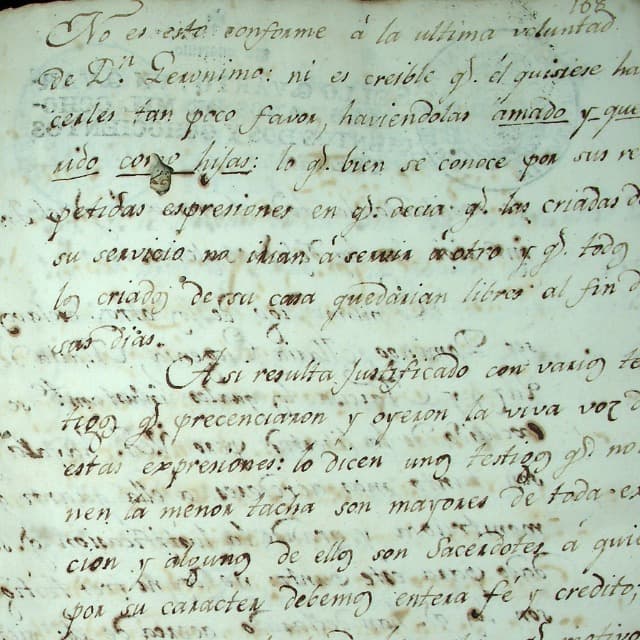 188
No es esto conforme á la ultima voluntad
de Dⁿ Geronimo: ni es creible qᵉ. él quisiese ha
cerles tan poco favor, haviendolas amado y que
rido como hijas: lo qᵉ. bien se conoce por sus re
petidas espresiones en qᵉ. decia qᵉ. las criadas de
su servicio no irian á servir á otro y qᵉ. todos
los criados de su casa quedarian libres al fin d
sas dias.
Asi resulta justificado con varios te
tigos qᵉ. precenciaron y oyeron la viva voz d
estas expresiones: lo dicen unos testigos qᵉ no
nen la menor tacha son mayores de toda ex
cion y algunos de ellos son Sacerdotes á quie
por su caracter debemos entera fé y credito;